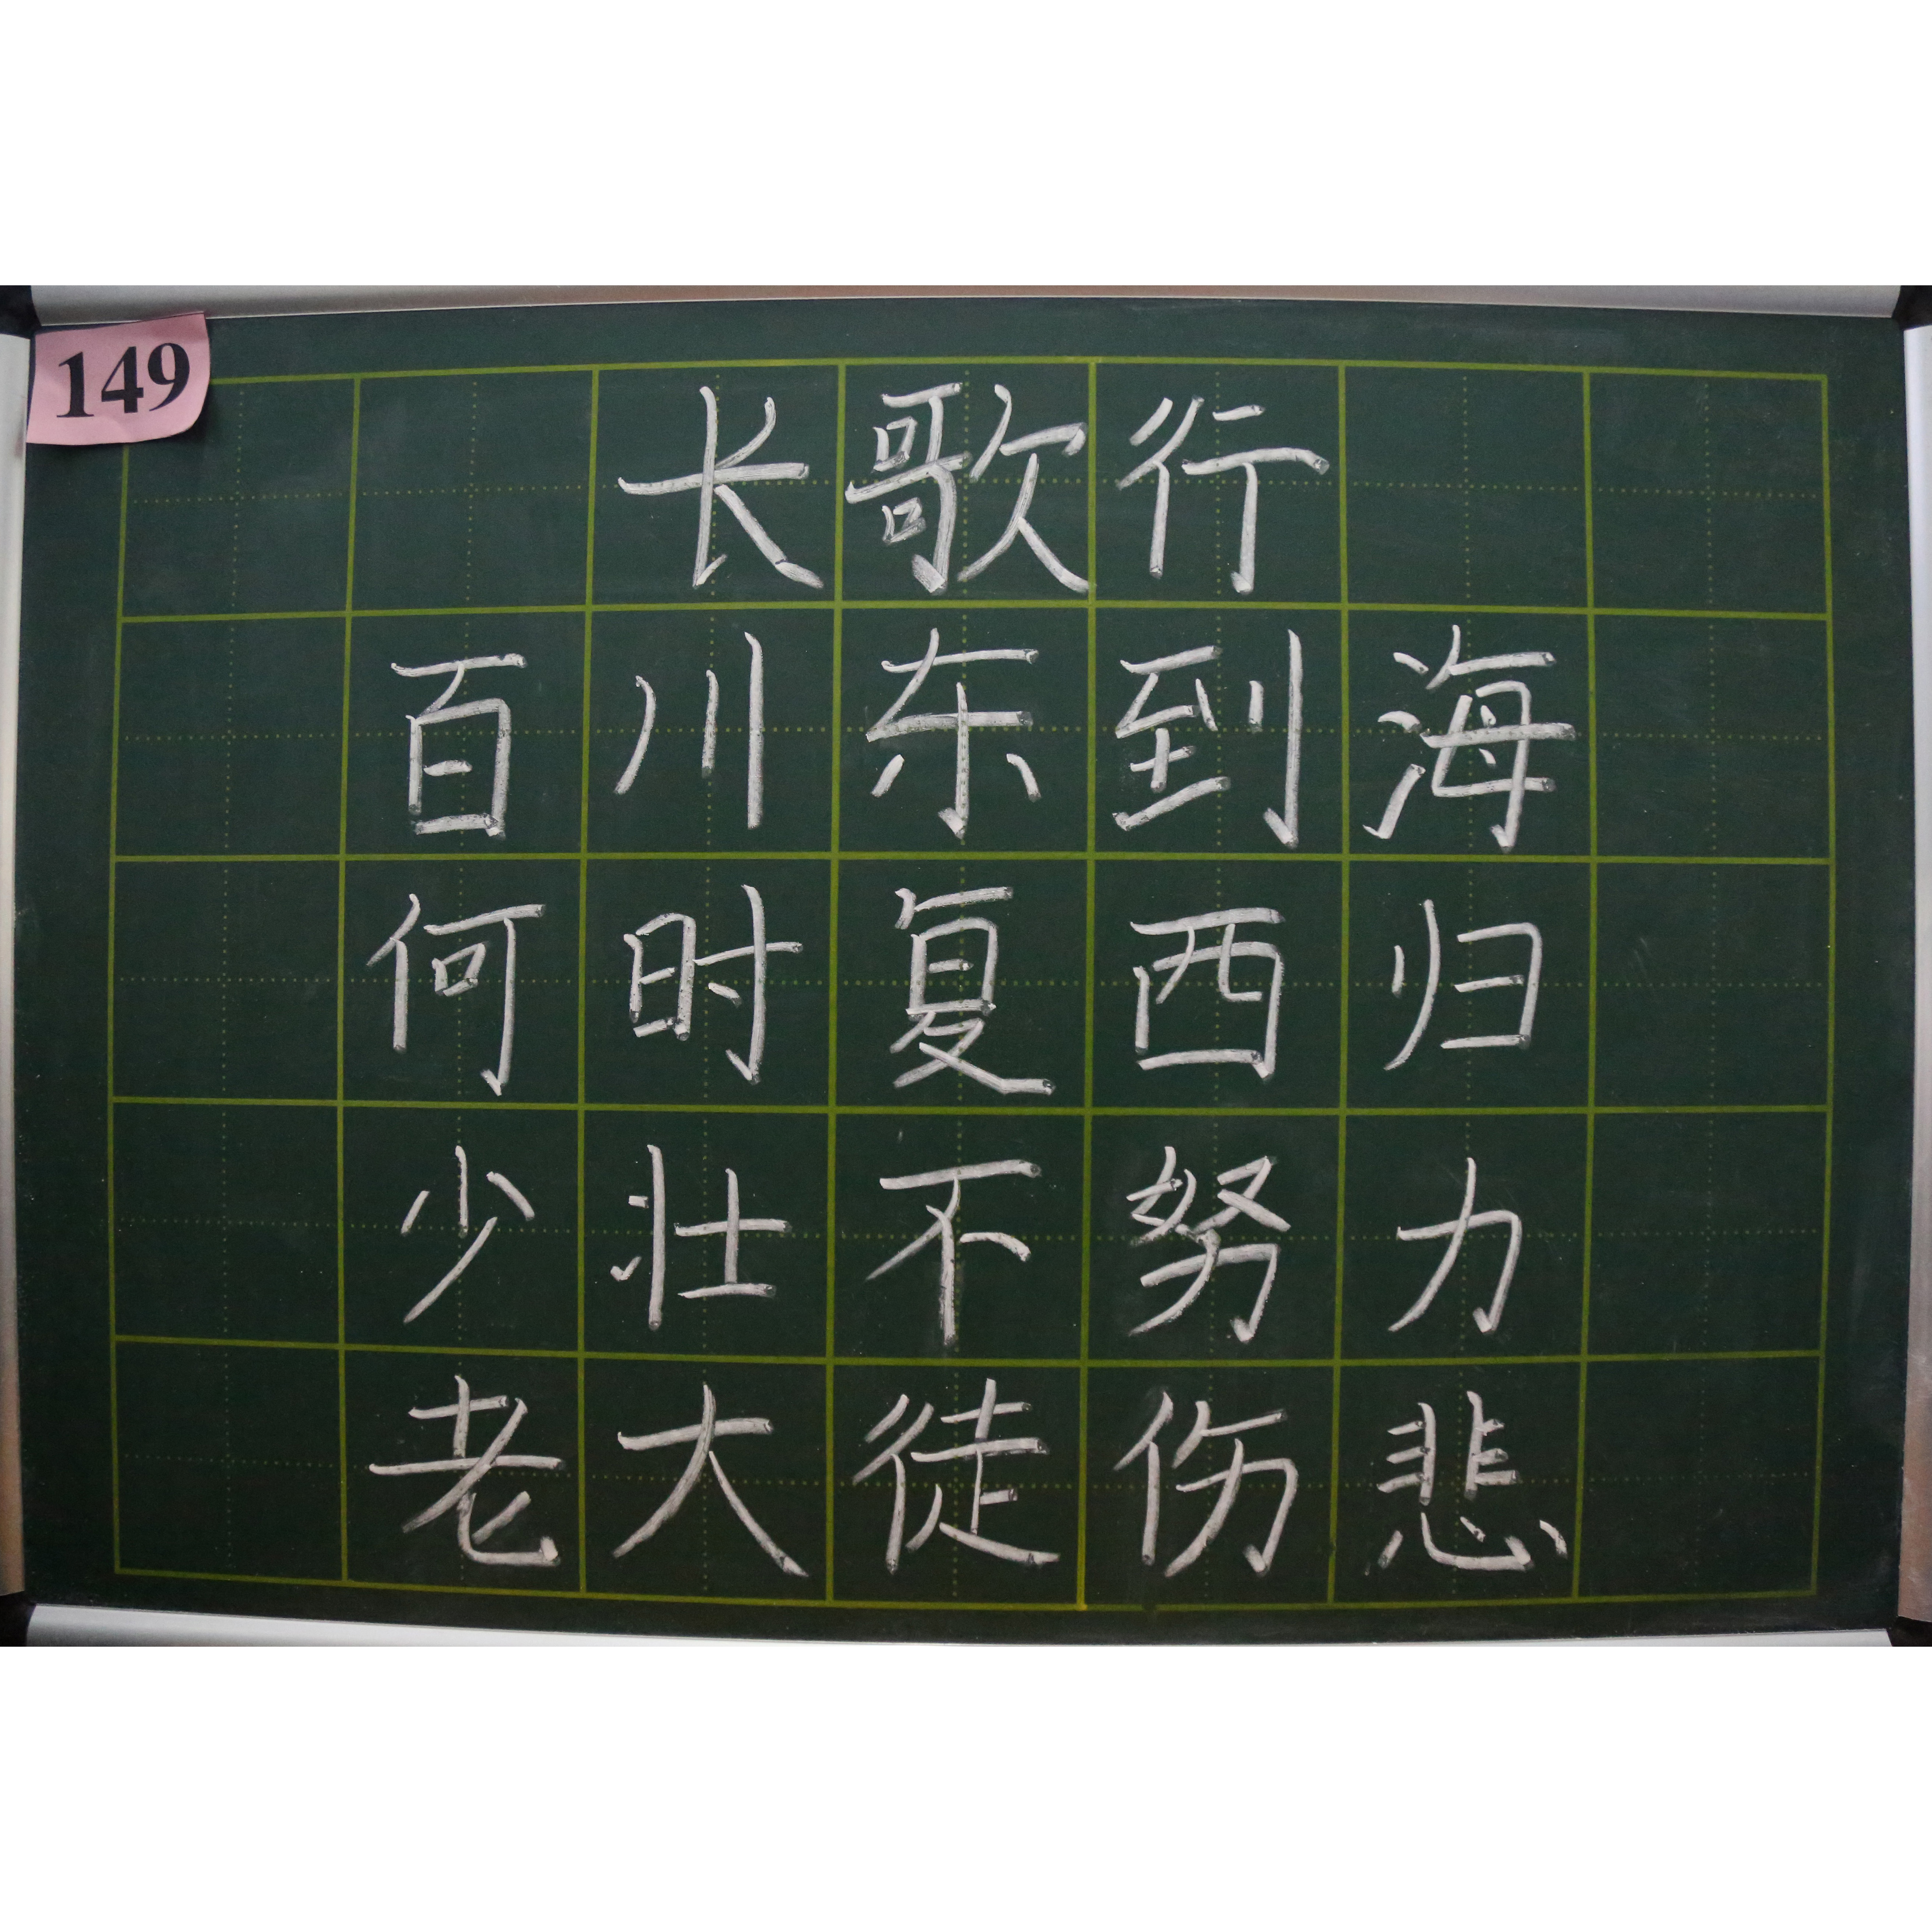 149
长歌行
百川东到海
何时复西归
少壮不努力
老大徒伤悲